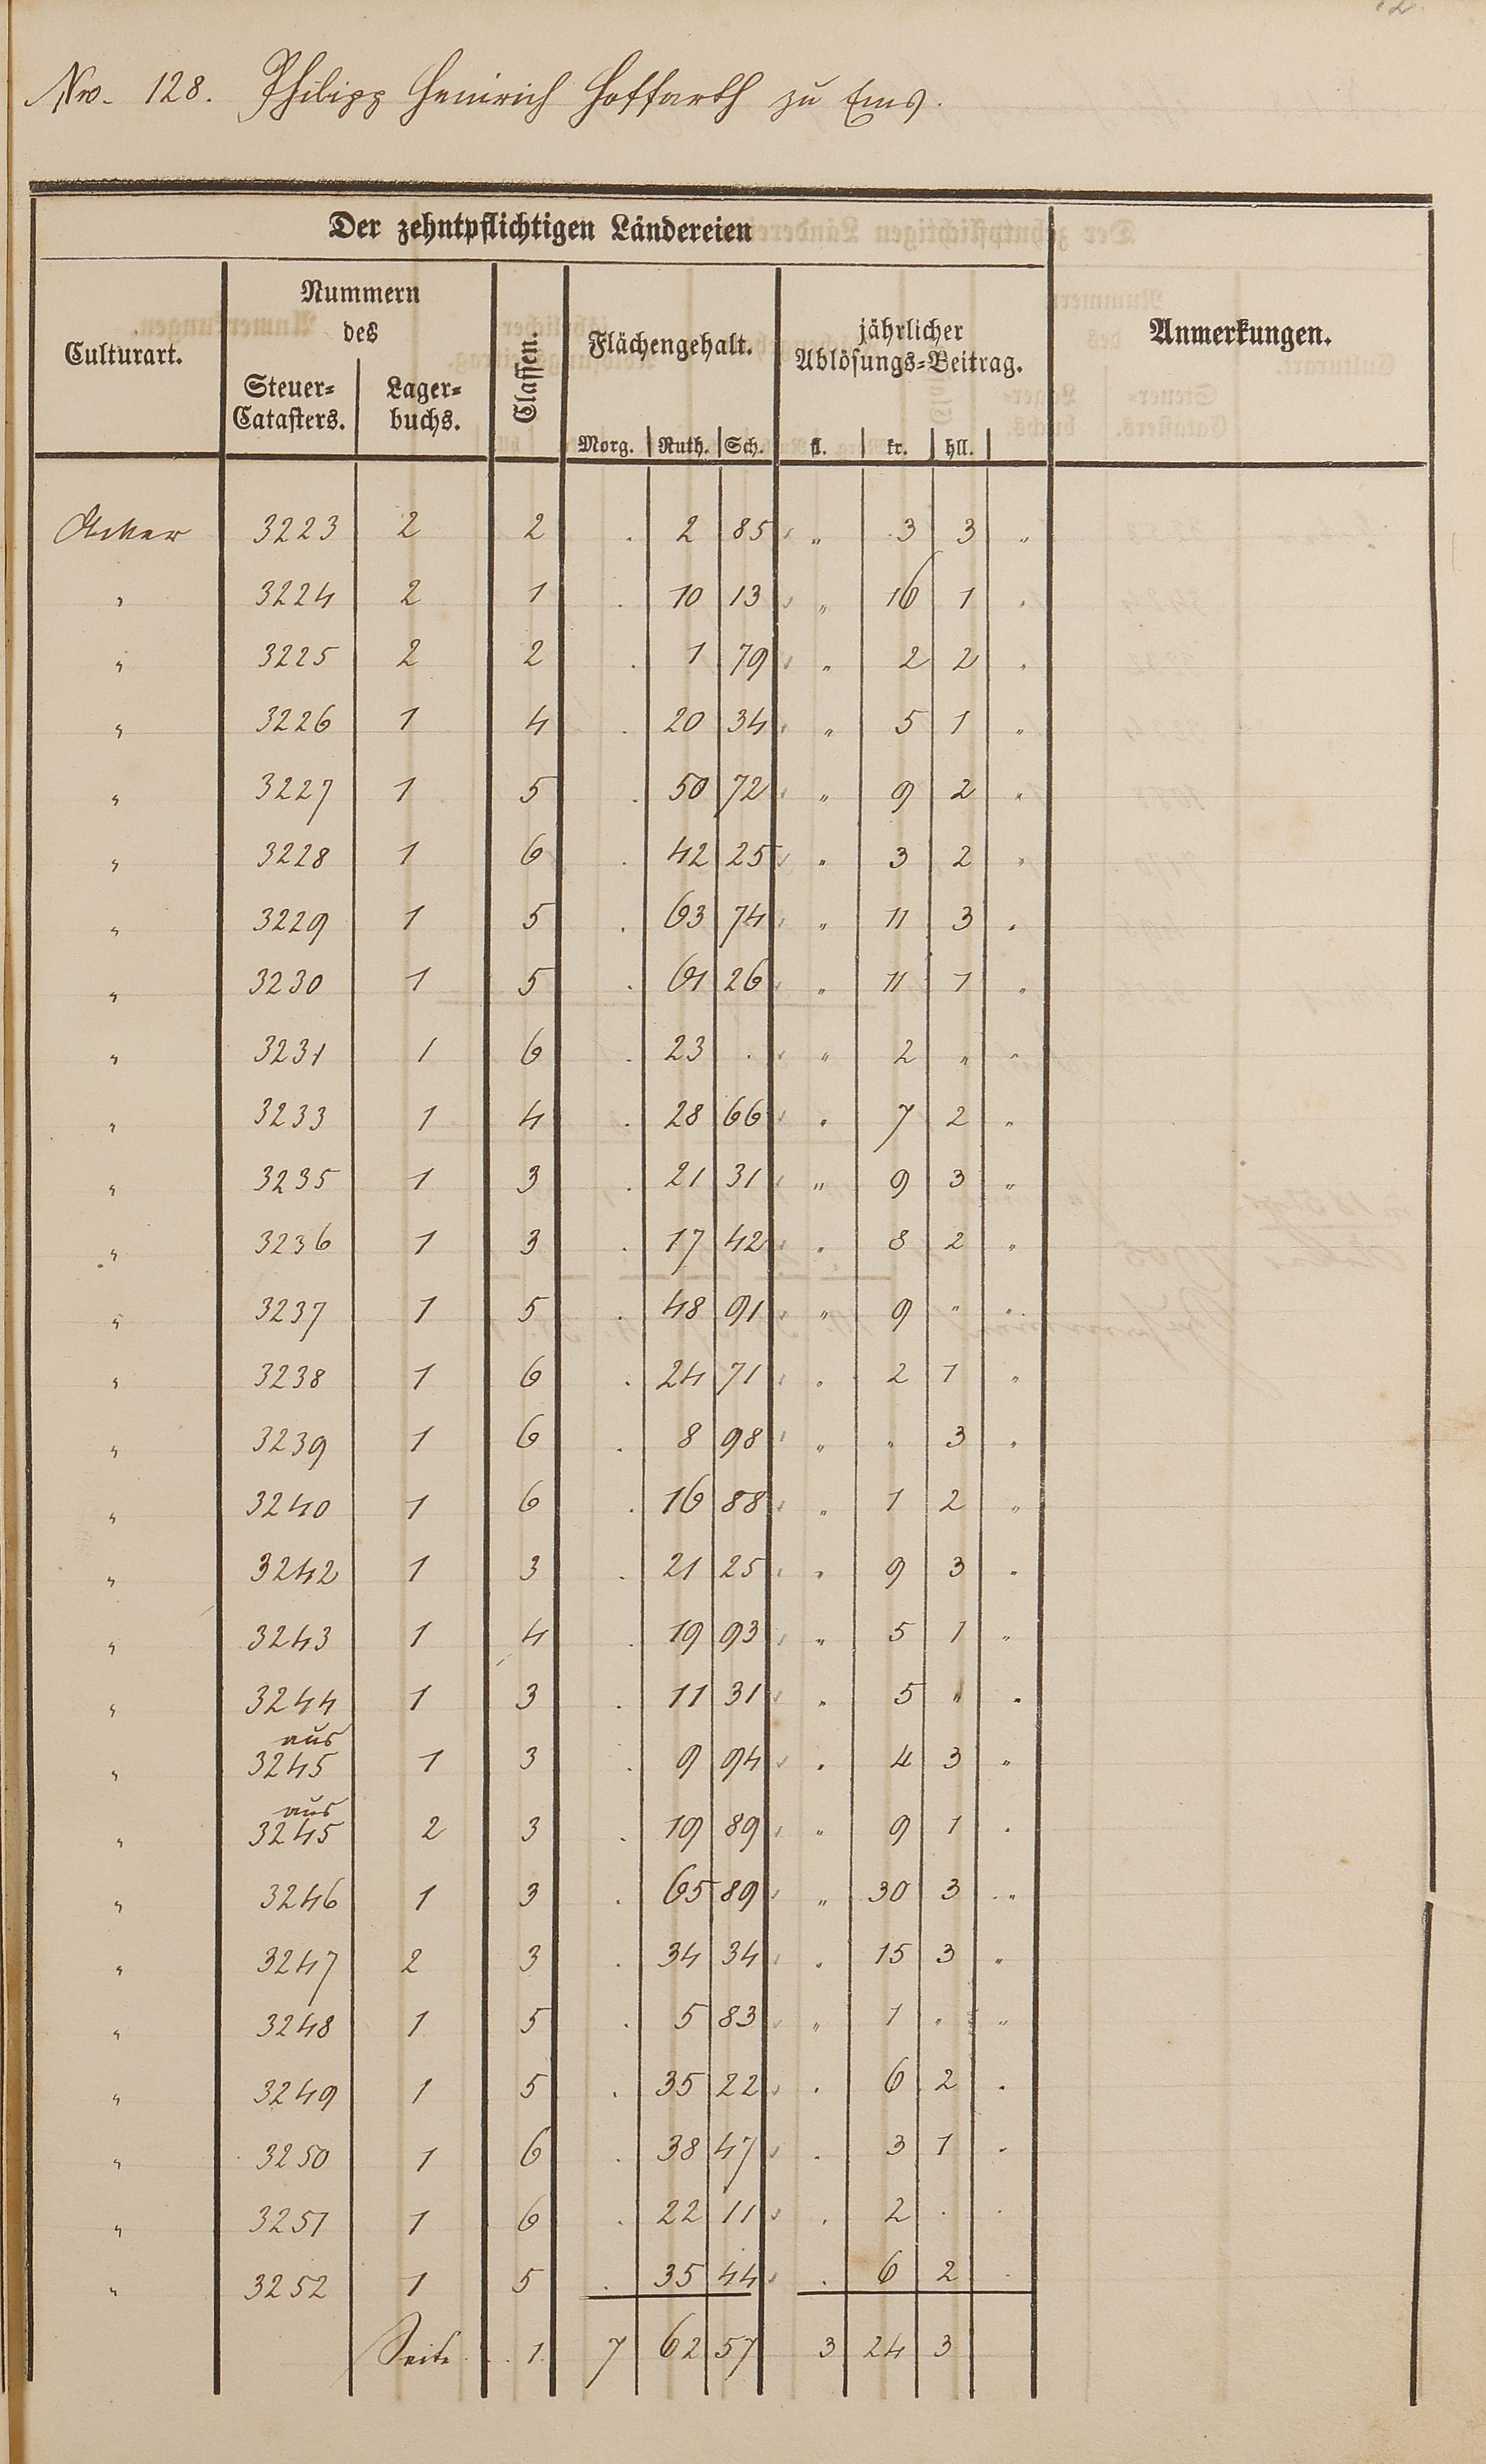 12.
Nro. 128. Philipp Heinrich Hoffarth zu Ems.
Der zehntpflichtigen Ländereien
Culturart. Nummern des Steuer= Catasters. Lager= buchs. Classen. Flächengehalt. Morg. Ruth. Sch. jährlicher Ablösungs=Beitrag. fl. kr. hll. Anmerkungen.
Acker 3223 2 2 . 2 85 „ 3 3 „
„ 3224 2 1 . 10 13 „ 16 1 „
„ 3225 2 2 . 1 79 „ 2 2 „
„ 3226 1 4 . 20 34 „ 5 1 „
„ 3227 1 5 . 50 72 „ 9 2 „
„ 3228 1 6 . 42 25 „ 3 2 „
„ 3229 1 5 . 63 74 „ 11 3 „
„ 3230 1 5 . 61 26 „ 11 1 „
„ 3231 1 6 . 23 . „ 2 „ „
„ 3233 1 4 . 28 66 „ 7 2 „
„ 3235 1 3 . 21 31 „ 9 3 „
„ 3236 1 3 . 17 42 „ 8 2 „
„ 3237 1 5 . 48 91 „ 9 „ „
„ 3238 1 6 . 24 71 „ 2 1 „
„ 3239 1 6 . 8 98 „ „ 3 „
„ 3240 1 6 . 16 88 „ 1 2 „
„ 3242 1 3 . 21 25 „ 9 3 „
„ 3243 1 4 . 19 93 „ 5 1 „
„ 3244 1 3 . 11 31 „ 5 „ „
„ aus 3245 1 3 . 9 94 „ 4 3 „
„ aus 3245 2 3 . 19 89 „ 9 1 .
„ 3246 1 3 . 65 89 „ 30 3 „
„ 3247 2 3 . 34 34 „ 15 3 „
„ 3248 1 5 . 5 83 „ 1 „ „
„ 3249 1 5 . 35 22 . 6 2 .
„ 3250 1 6 . 38 47 . 3 1 .
„ 3251 1 6 . 22 11 . 2 . .
„ 3252 1 5 . 35 44 . 6 2 .
Seite 1. 7 62 57 3 24 3